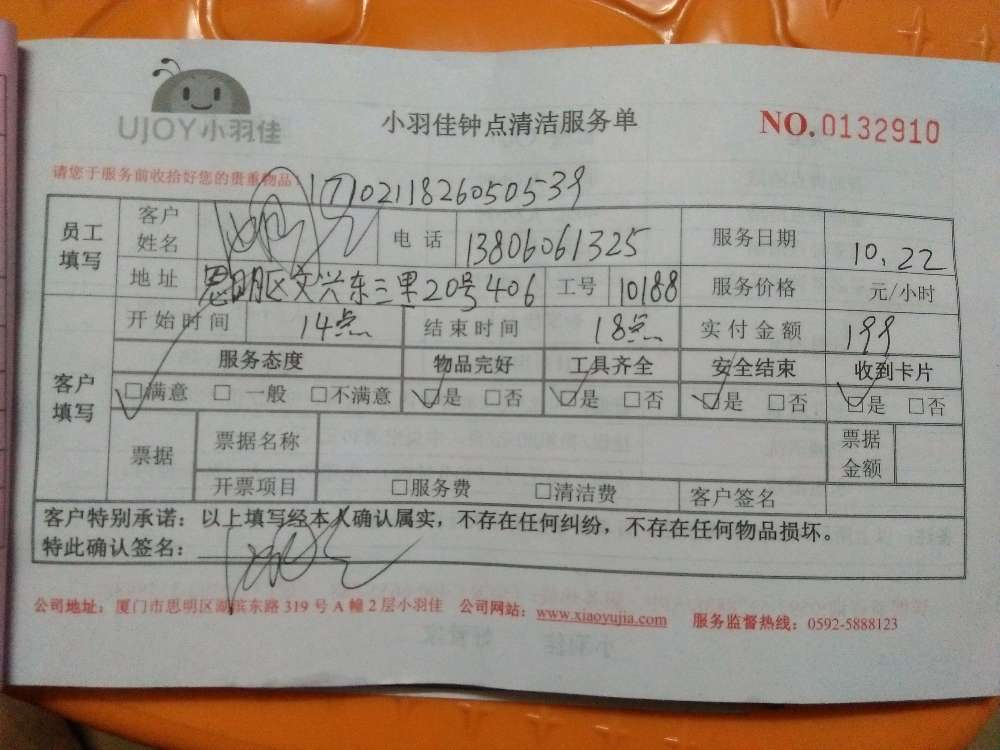 UJOY小羽佳
小羽佳钟点清洁服务单
NO.0132910
请您于服务前收拾好您的贵重物品!
⑦10211826050539
员工填写 客户姓名 电话 13806061325 服务日期 10.22
地址 思明区文兴东三里20号406 工号 10188 服务价格 元/小时
客户填写 开始时间 14点 结束时间 18点 实付金额 199
服务态度 物品完好 工具齐全 安全结束 收到卡片
☑满意 □一般 □不满意 ☑是 □否 ☑是 □否 ☑是 □否 ☑是 □否
票据 票据名称 票据金额
开票项目 □服务费 □清洁费 客户签名
客户特别承诺:以上填写经本人确认属实,不存在任何纠纷,不存在任何物品损坏。
特此确认签名:
公司地址:厦门市思明区湖滨东路319号A幢2层小羽佳 公司网站:www.xiaoyujia.com 服务监督热线:0592-5888123